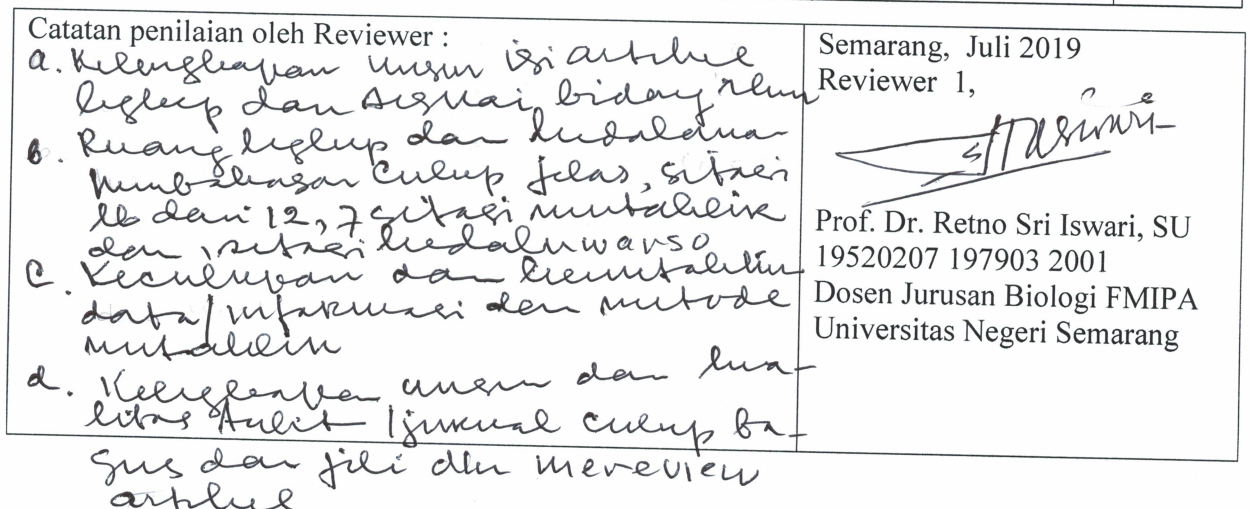 Catatan penilaian oleh Reviewer :
a. Kelengkapan unsur isi artikel
lengkap dan sesuai bidang ilmu
b. Ruang lingkup dan kedalaman
pembahasan cukup jelas, sitasi
dari 12, 7 sitasi mutakhir
dan 1 sitasi kedaluwarso
c. Kecukupan dan kemutakhiran
data/informasi dan metode
mutakhir
d. Kelengkapan unsur dan kua-
litas /jurnal cukup ba-
gus dan jeli dlm mereview
artikel
Semarang, Juli 2019
Reviewer 1,
Prof. Dr. Retno Sri Iswari, SU
19520207 197903 2001
Dosen Jurusan Biologi FMIPA
Universitas Negeri Semarang